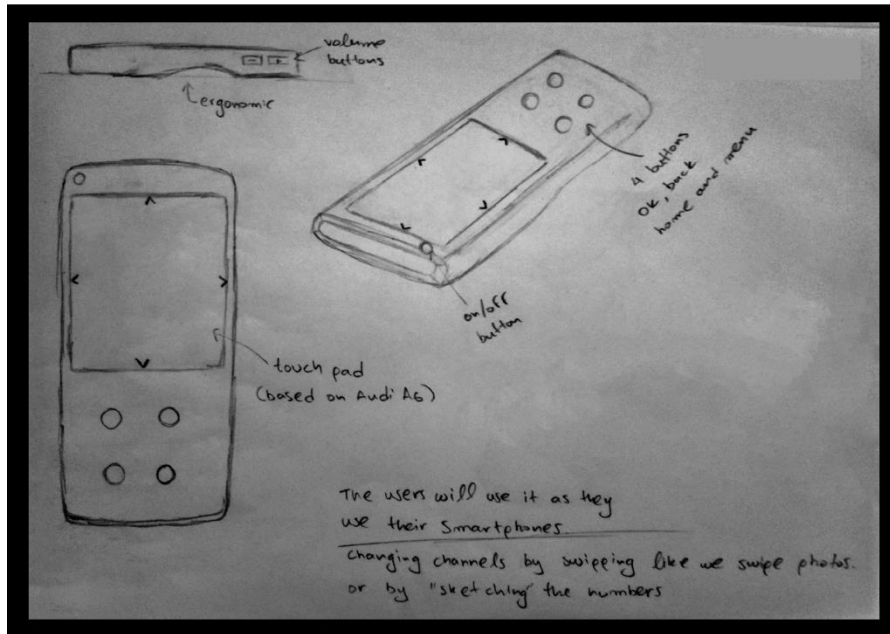 volume
buttons
ergonomic
4 buttons
ok, back
home and menu
on/off
button
touch pad
(based on Audi A6)
The users will use it as they
use their smartphones
changing channels by swipping like we swipe photos.
or by "sketching" the numbers